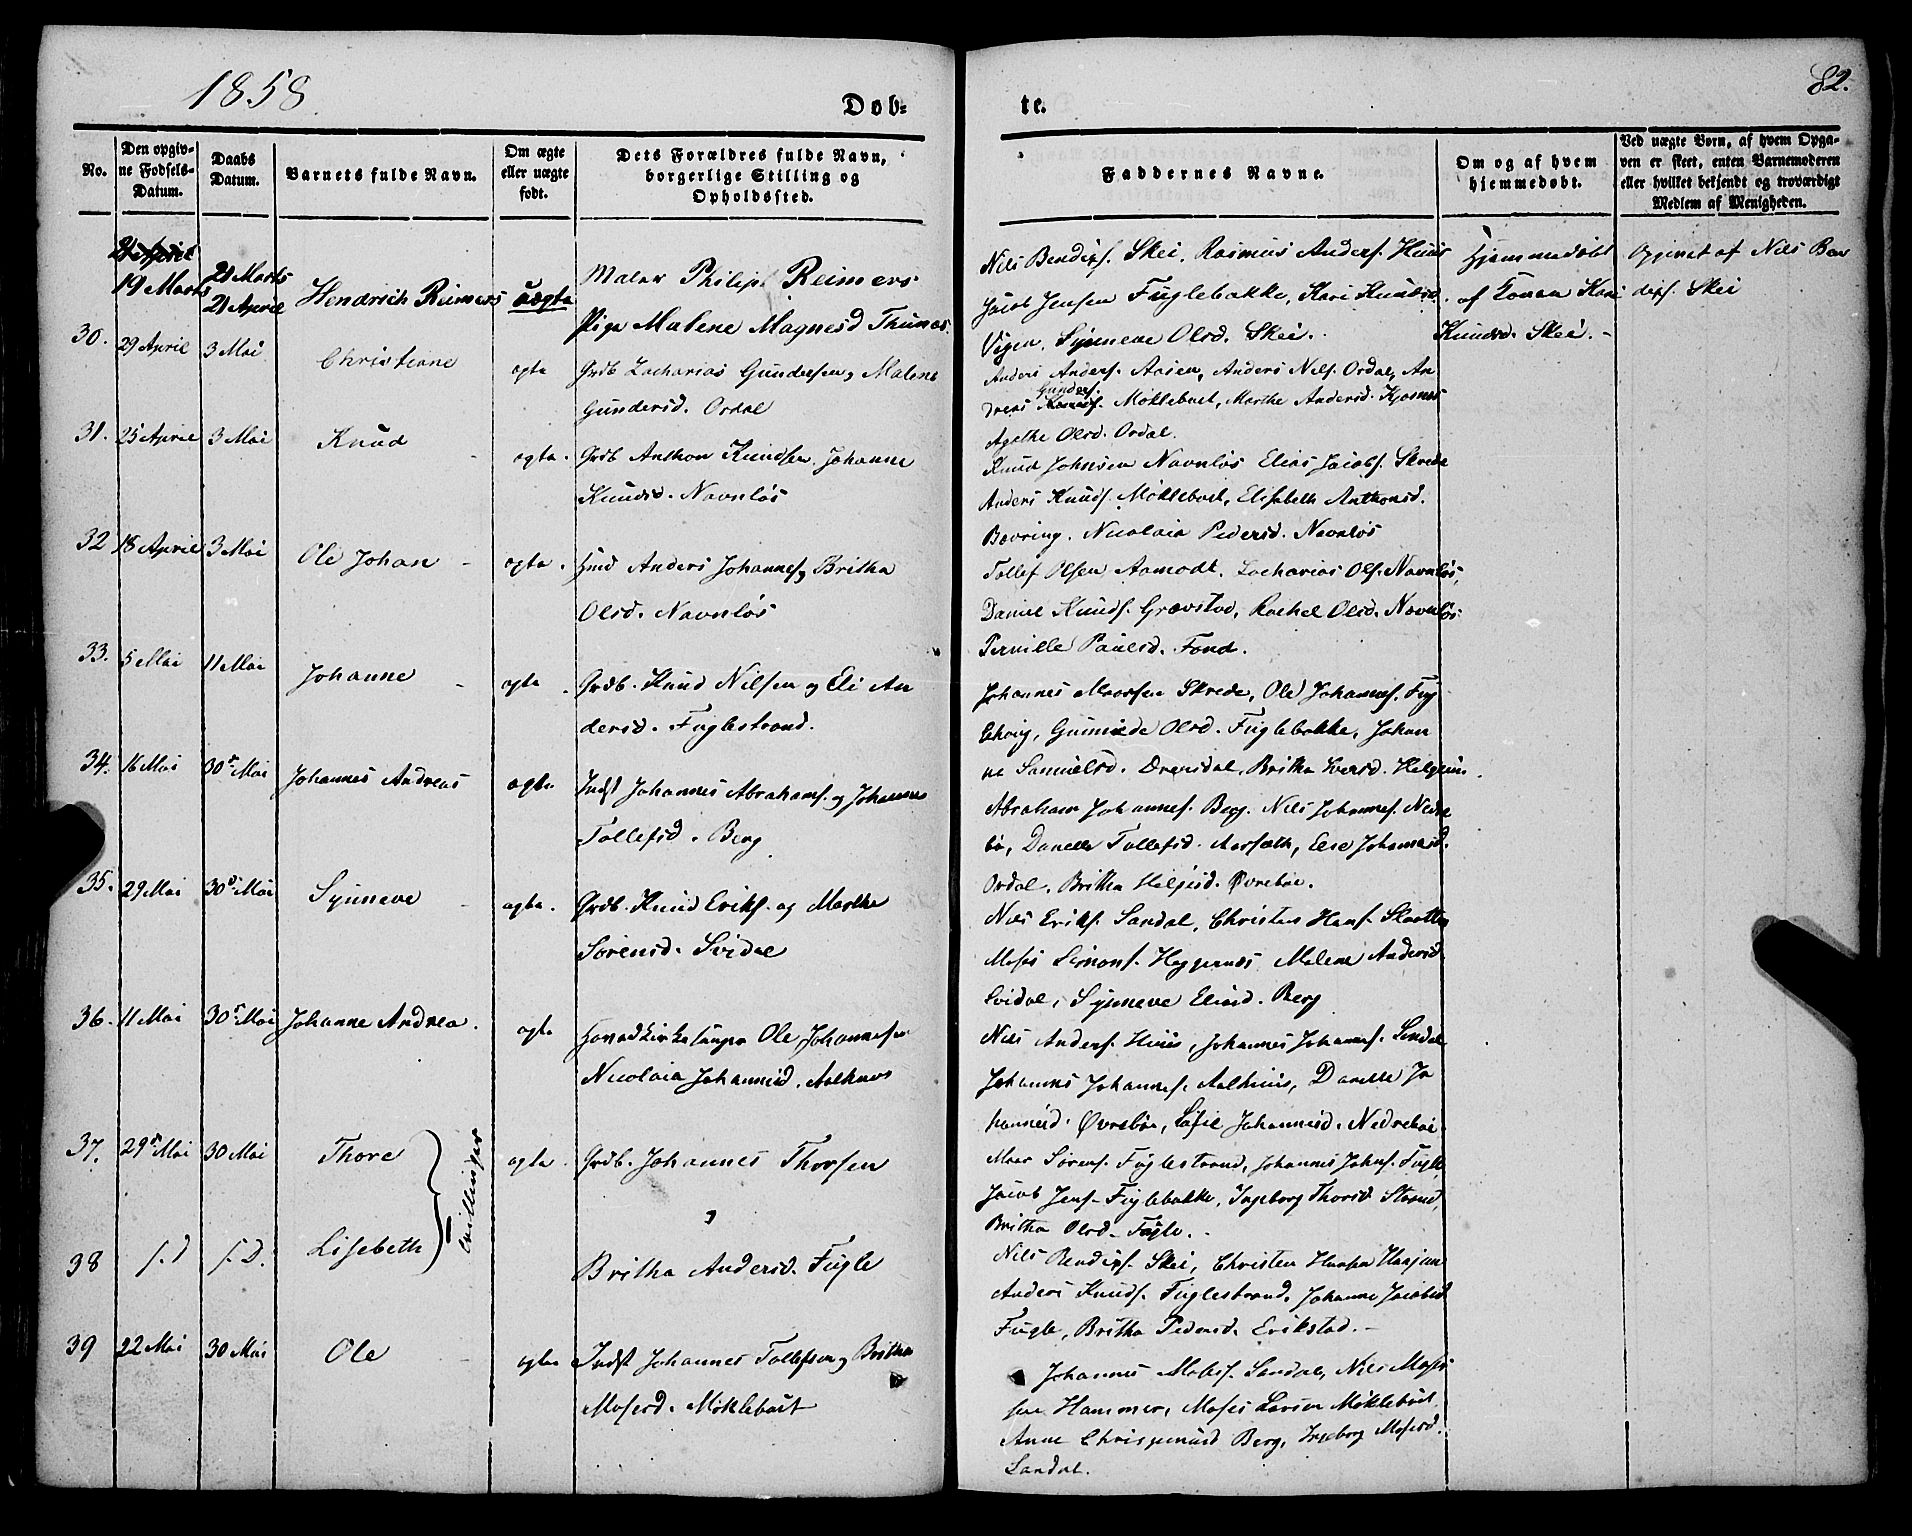 1858
82.
Døb-
te.
No.
Den opgiv-
ne Fødsels-
Datum.
Daabs
Datum.
Barnets fulde Navn.
Om ægte
eller uægte
født.
Dets Forældres fulde Navn,
borgerlige Stilling og
Opholdssted.
Faddernes Navne.
Om og af hvem
hjemmedøbt.
Ved uægte Børn, af hvem Opga-
ven er skeet, enten Barnemoderen
eller hvilket bekjendt og troværdigt
Medlem af Menigheden.
19 Marts
21 Marts
21 April
Hendrich Reimers
uægte
Maler Philip Reimers
Pige Malene Magnesd Thunes.
Nils Bendixs. Skei, Rasmus Anders. Huus
Jacob Jensen Fuglebakke, Kari Knudsd.
Vigen, Synneve Olsd. Skei.
Hjemmedøbt
af Konen Kari
Knudsd. Skei. -
Opgivet af Nils Ben
dixs. Skei
30.
29 April
3 Mai
Christiane
ægte
Grdb Zacharias Gundersen og Malene
Gundersd. Ordal
Anders Anders. Aasen, Anders Nils. Ordal, An
dreas Gunders. Møklebust, Marthe Andersd. Kjøsnes
Agethe Olsd. Ordal.
31.
25 April
3 Mai
Knud
ægte.
Grdb Anthon Knudsen, Johanne
Knudsd. Navnløs
Knud Johnsen Navnløs Elias Jacobs. Skrede
Anders Knuds. Møklebust, Elisabeth Anthonsd.
Bovring, Nicolaia Pedersd. Navnløs
32
18 April
3 Mai
Ole Johan
ægte.
Hmd Anders Johannes. og Britha
Olsd. Navnløs
Tollef Olsen Aamodt, Zacharias Ols. Navnløs,
Daniel Knuds. Grøvstad, Rachel Olsd. Navnløs
Pernille Paulsd. Fond.
33.
5 Mai
11 Mai
Johanne
ægte.
Grdb. Knud Nilsen og Eli An
dersd. Fuglestrand.
Johannes Moorsen Skrede, Ole Johannes. Fug
lehoug, Gunnilde Olsd. Fuglebakke, Johan
ne Samuelsd. Årdal, Britha Iversd. Helgeim.
34.
16 Mai
30te Mai
Johannes Andreas
ægte
Indst Johannes Abrahams. og Johanne
Tollefsd. Berg
Abraham Johannes. Berg, Nils Johannes. Nedre
bø, Danelle Tollefsd. Aarsæth, Else Johannesd.
Ordal, Britha Helgesd. Øvrebøe.
35.
29 Mai
30te Mai
Synneve
ægte.
Grdb. Knud Eriks. og Marthe
Sørensd. Svidal
Nils Eriks. Sandal, Christen Hans. Slaatten
Moses Simons. Heggenæs Malene Andersd
Svidal, Synneve Eliasd. Berg
36.
11 Mai
30te Mai
Johanne Andrea.
ægte
Hovedkirkesanger Ole Johannesen
Nicolaia Johannesd. Aalhuus
Nils Anders. Huus, Johannes Johannes. Sandal
Johannes Johannes. Aalhuus, Danelle Jo
hannesd. Øvrebøe, Sofie Johannesd. Nedrebøe
37.
29de Mai
30 Mai
Thore
Tvillinger
ægte.
Grdb. Johannes Thorsen
Moor Sørens. Fuglestrand, Johannes Johns. Fugle
Jacob Jens. Fuglebakke, Ingeborg Thorsd Strand,
Britha Olsd. Fugle. -
38
s. D
s. D.
Lisebeth
Britha Andersd. Fugle
Nils Bendixs. Skei, Christen Hansen Haajem
Anders Knuds. Fuglestrand, Johanne Jacobsd
Fugle, Britha Pedersd. Erikstad. -
39
22 Mai
30 Mai
Ole
ægte
Indst Johannes Tollefsen og Britha
Mosesd. Møklebust
Johannes Moses. Sandal, Nils Moses
sen Hammer, Moses Larsen Møklebust
Anne Chrispinusd Berg, Ingeborg Mosesd.
Sandal.